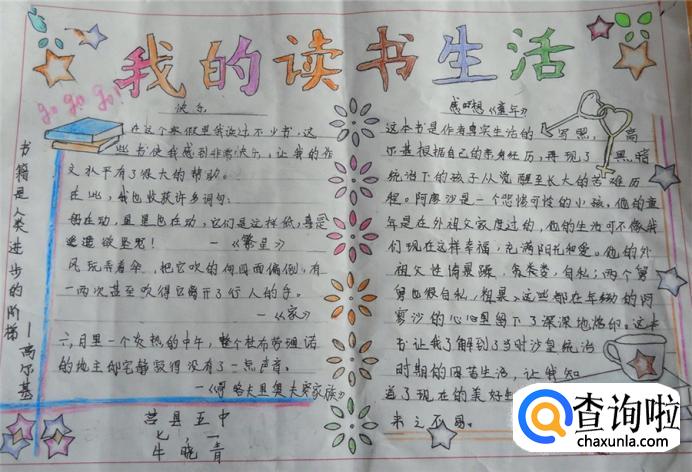 我的读书生活
go go go!
快乐
在这个寒假里我读过不少书，这
些书使我感到非常快乐，让我的作
文水平有了很大的帮助。
在此，我也收获许多词句：
风玩弄着伞，把它吹的向四面偏倒，有
一两次甚至吹得它离开了行人的手。
一《家》
六月里一个炎热的中午，整个杜布劳诺
的地主邸宅静寂得没有了一点声音。
莒县五中
七、一
牛晓青
书籍是人类进步的阶梯
——高尔基
感想《童年》
这本书是作者真实生活的写照，高
尔基根据自己的亲身经历，再现了黑暗
统治下的孩子从觉醒至长大的苦难历
程。阿廖沙是一个悲惨可怜的小孩，他的童
年是在外祖父家度过的，他的生活可不像我
们现在这样幸福，充满阳光和爱。他的外
祖父性情暴躁，贪婪，自私；两个舅
舅也很自私，粗暴。这些都在年幼的阿
廖沙的心里留下了深深地烙印。这本
书让我了解到了当时沙皇统治
时期的困苦生活，让我知
道了现在的美好生
来之不易。
查询啦
chaxunla.com